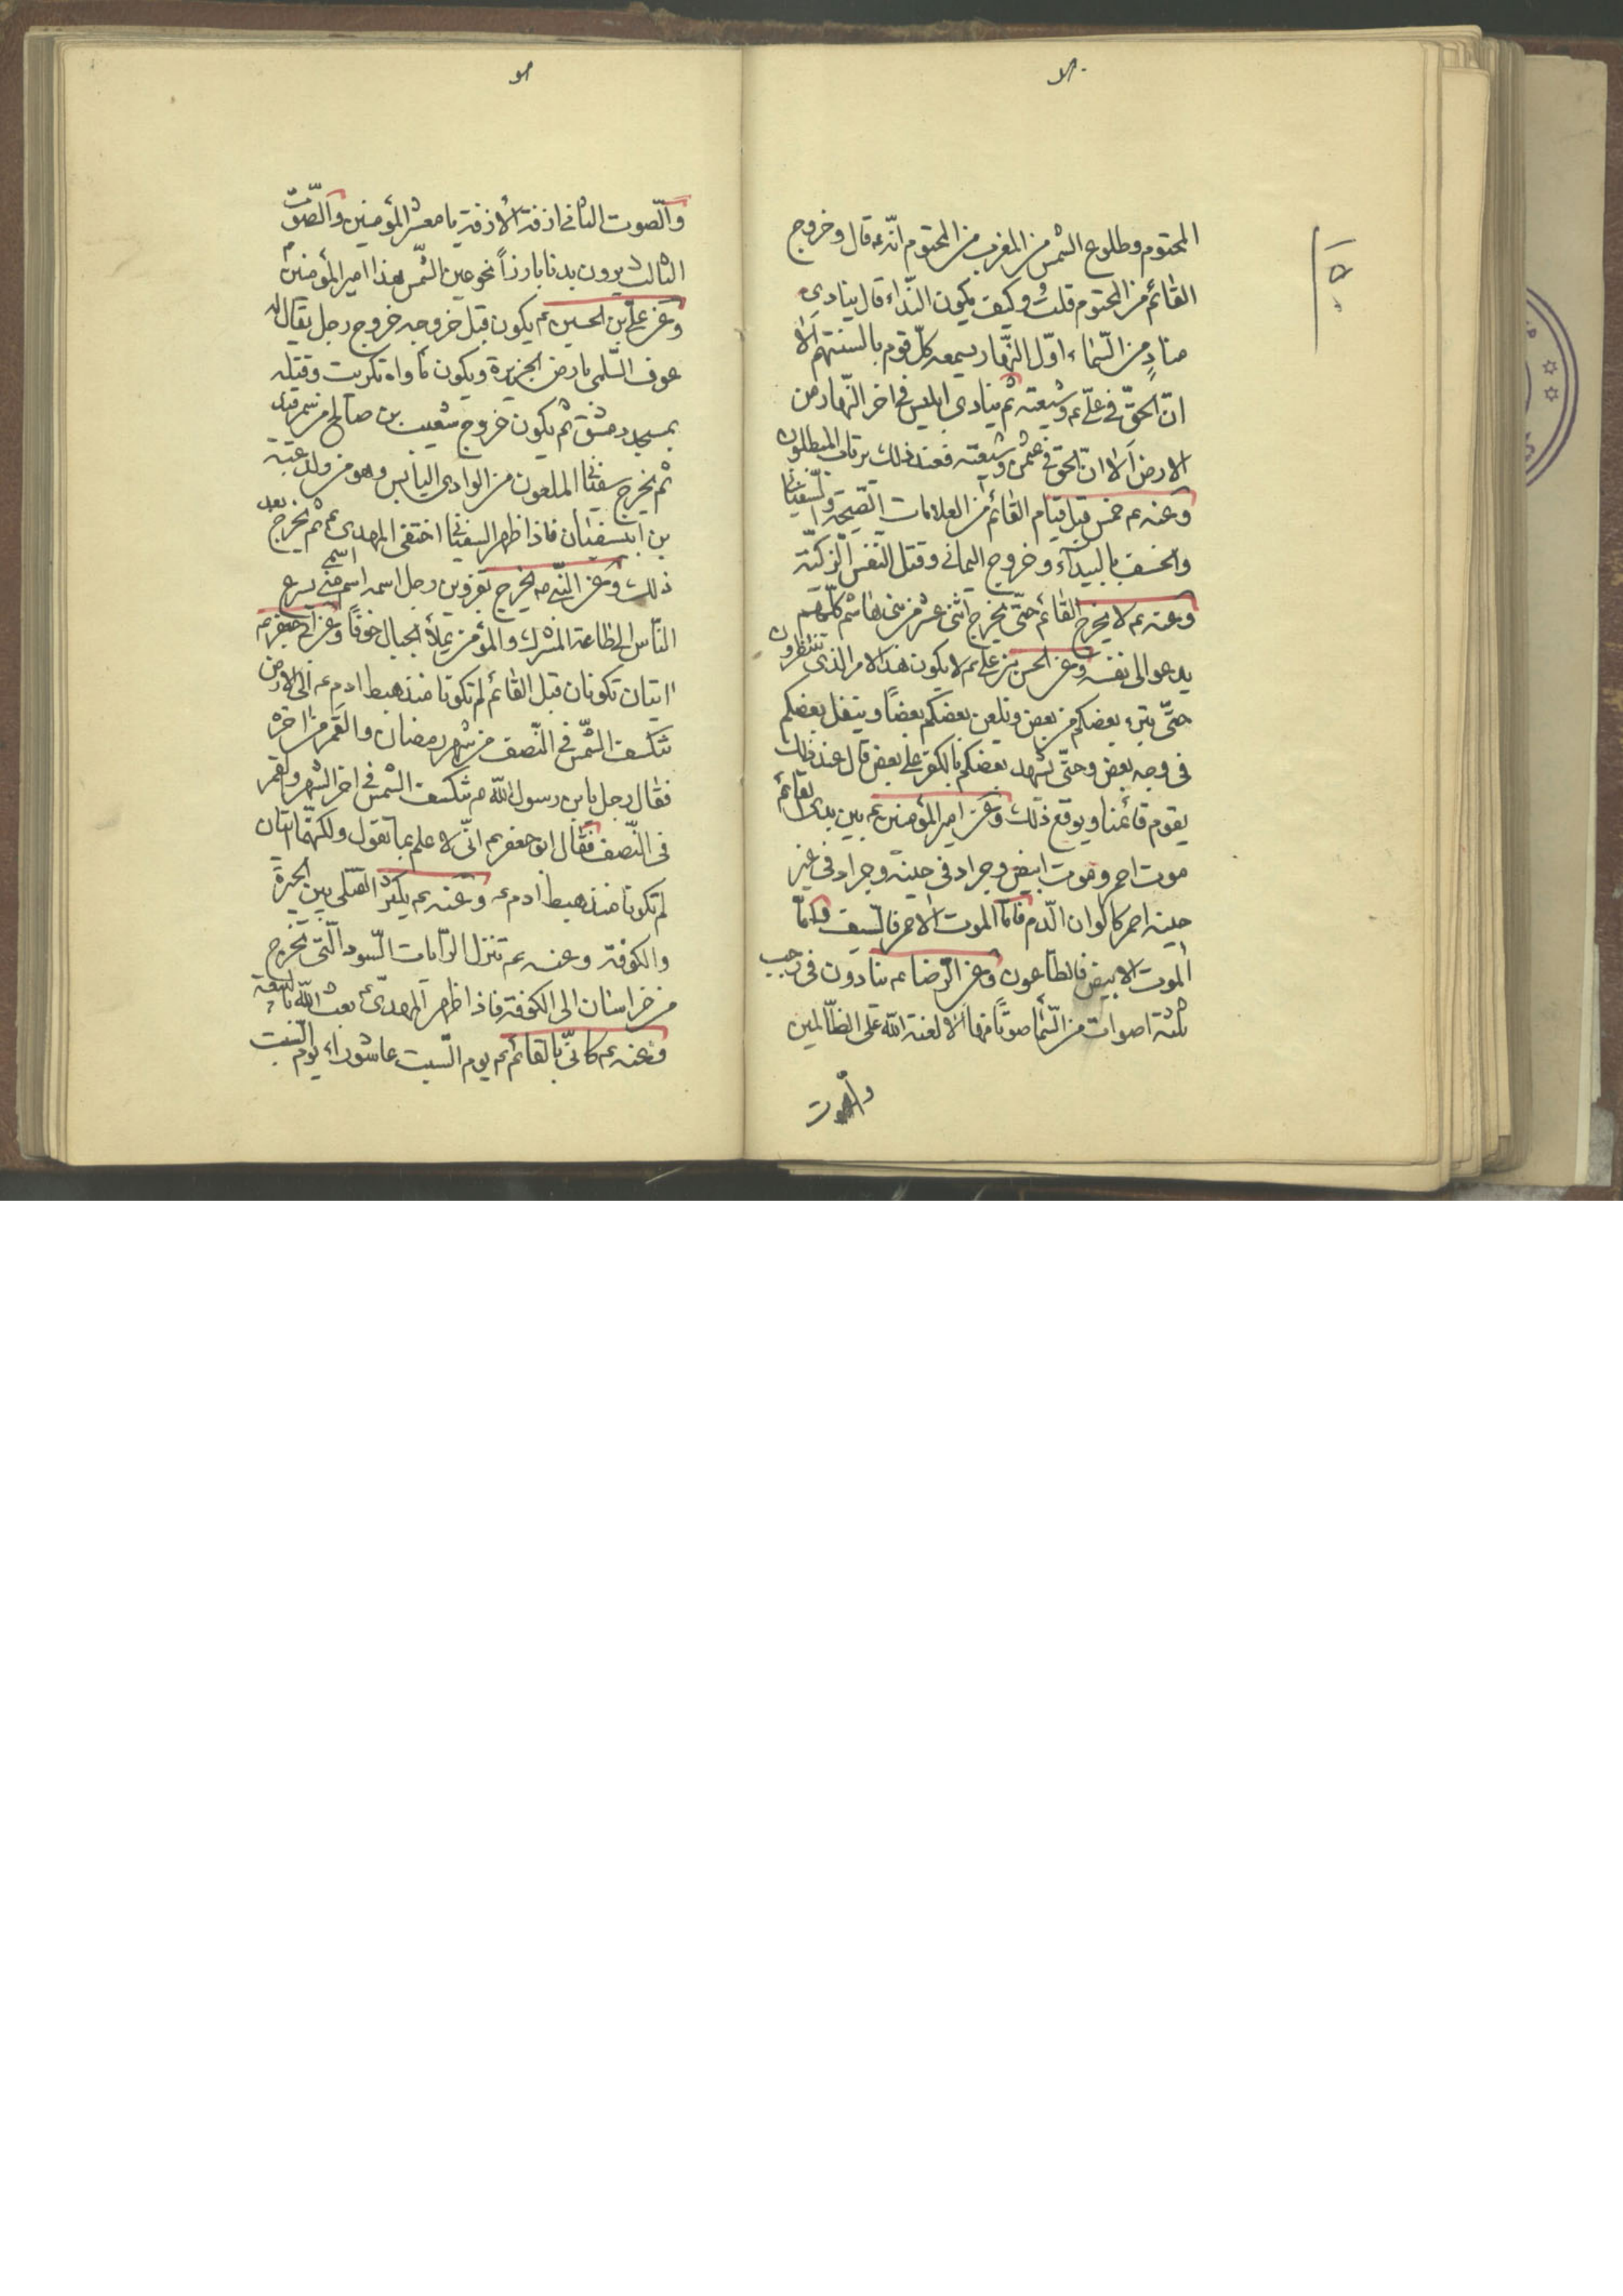 المحتوم وطلوع الشمس من المغرب من المحتوم انّه ع قال وخروج
القائم من المحتوم قلت وكيف يكون النّداء قال ينادى
منادٍ من السّماء اوّل النّهار يسمعه كلّ قوم بالسنتهم الا
انّ الحقّ فى علىّ ع وشيعته ثم ينادى ابليس فى اخر النّهار من
الارض الا انّ الحق فى عثمن وشيعته فعند ذلك يرتاب المبطلون
وعنه ع خمس قبل قيام القائم من العلامات الصّيحة والسّفيانى
والخسف بالبيدآء وخروج اليمانى وقتل النّفس الزكيّة
وعنه ع لا يخرج القائم حتّى يخرج اثنى عشر من بنى هاشم كلّهم
يدعو الى نفسه وعن الحسن بن على ع لا يكون هذا الامر الذى تنتظرون
حتّى يتبرء بعضكم من بعض ويلعن بعضكم بعضاً ويتفل بعضكم
فى وجه بعض وحتّى يشهد بعضكم بالكفر على بعض قال عند ذلك
يقوم قائمنا ويرفع ذلك وعن امير المؤمنين ع بين يدى القائم
موت احمر وموت ابيض وجراد فى حينه وجراد فى غير
حينه احمر كالوان الدّم فامّا الموت الاحمر فالسّيف وامّا
الموت الابيض فالطّاعون وعن الرّضا ع ينادون فى رجب
ثلثة اصوات من السّماء صوتاً منها الا لعنة الله على الظّالمين
والصوت
والصّوت الثانى ازفة الأزفة يا معشر المؤمنين والصّوت
الثالث يرون بدنا بارزاً نحو عين الشّمس هذا امير المؤمنين
وعن علىّ بن الحسين ع يكون قبل خروجه خروج رجل يقال له
عوف السّلمى بارض الجزيرة ويكون مأواه تكريت وقتله
بمسجد دمشق ثم يكون خروج شعيب بن صالح من سمرقند
ثم يخرج سفيانى الملعون من الوادى اليابس وهو من ولد عتبة
بن ابى سفيان فاذا ظهر السفيانى اختفى المهدى ع ثم يخرج بعد
ذلك وعن النّبى ص يخرج بقزوين رجل اسمه اسم نبى يسرع
النّاس الى طاعته المشرك والمؤمن يملأ الجبال خوفاً وعن ابى جعفر ع
ايتان تكونان قبل القائم لم تكونا منذ هبط ادم ع الى الارض
تنكسف الشّمس فى النّصف من شهر رمضان والقمر فى اخره
فقال رجل يابن رسول الله ص تنكسف الشمس فى اخر الشهر والقمر
فى النّصف فقال ابو جعفر ع انّى لا علم بما تقول ولكنهما ايتان
لم تكونا منذ هبط ادم ع وعنه ع يكثر القتلى بين الحيرة
والكوفة وعنه ع تنزل الرّايات السّود الّتى تخرج
من خراسان الى الكوفة فاذا ظهر المهدىّ ع بعث الله بالبيعة
وعنه ع كانّى بالقائم ع يوم السّبت عاشوراء يوم السّبت